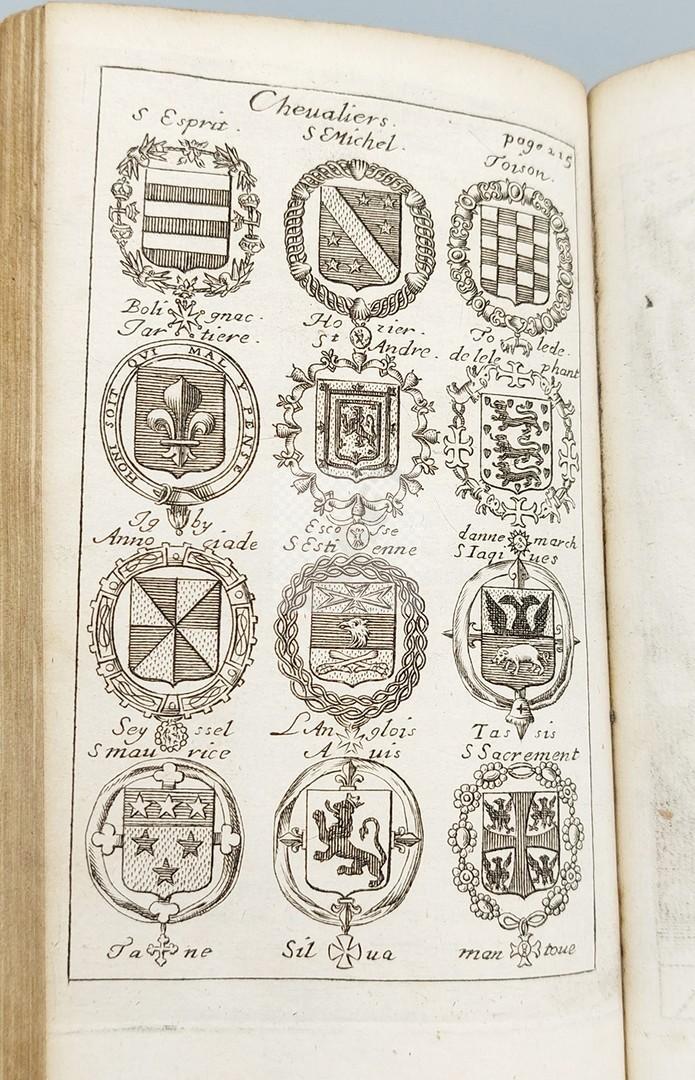 Chevaliers.
page 215
S Esprit.
S EMichel.
Toison.
Boli gnac.
Ho zier.
To lede.
Jar tiere.
St Andre.
de lele phant
HONI SOIT QVI MAL Y PENSE
Ig by
Esco sse
danne march
Anno ciade
S Esti enne
S Iaq ues
Sey ssel
L An glois
Tas sis
S mau rice
A uis
S Sacrement
Ta ne
Sil ua
man toue